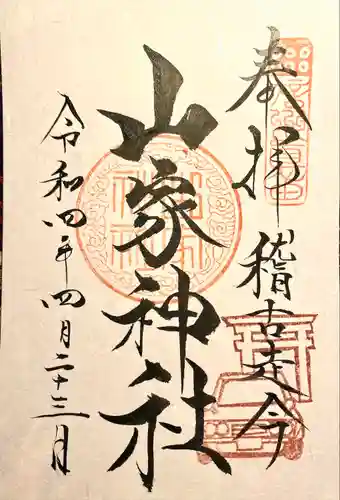 奉拝
稽古走今
山家神社
令和四年四月二十三日